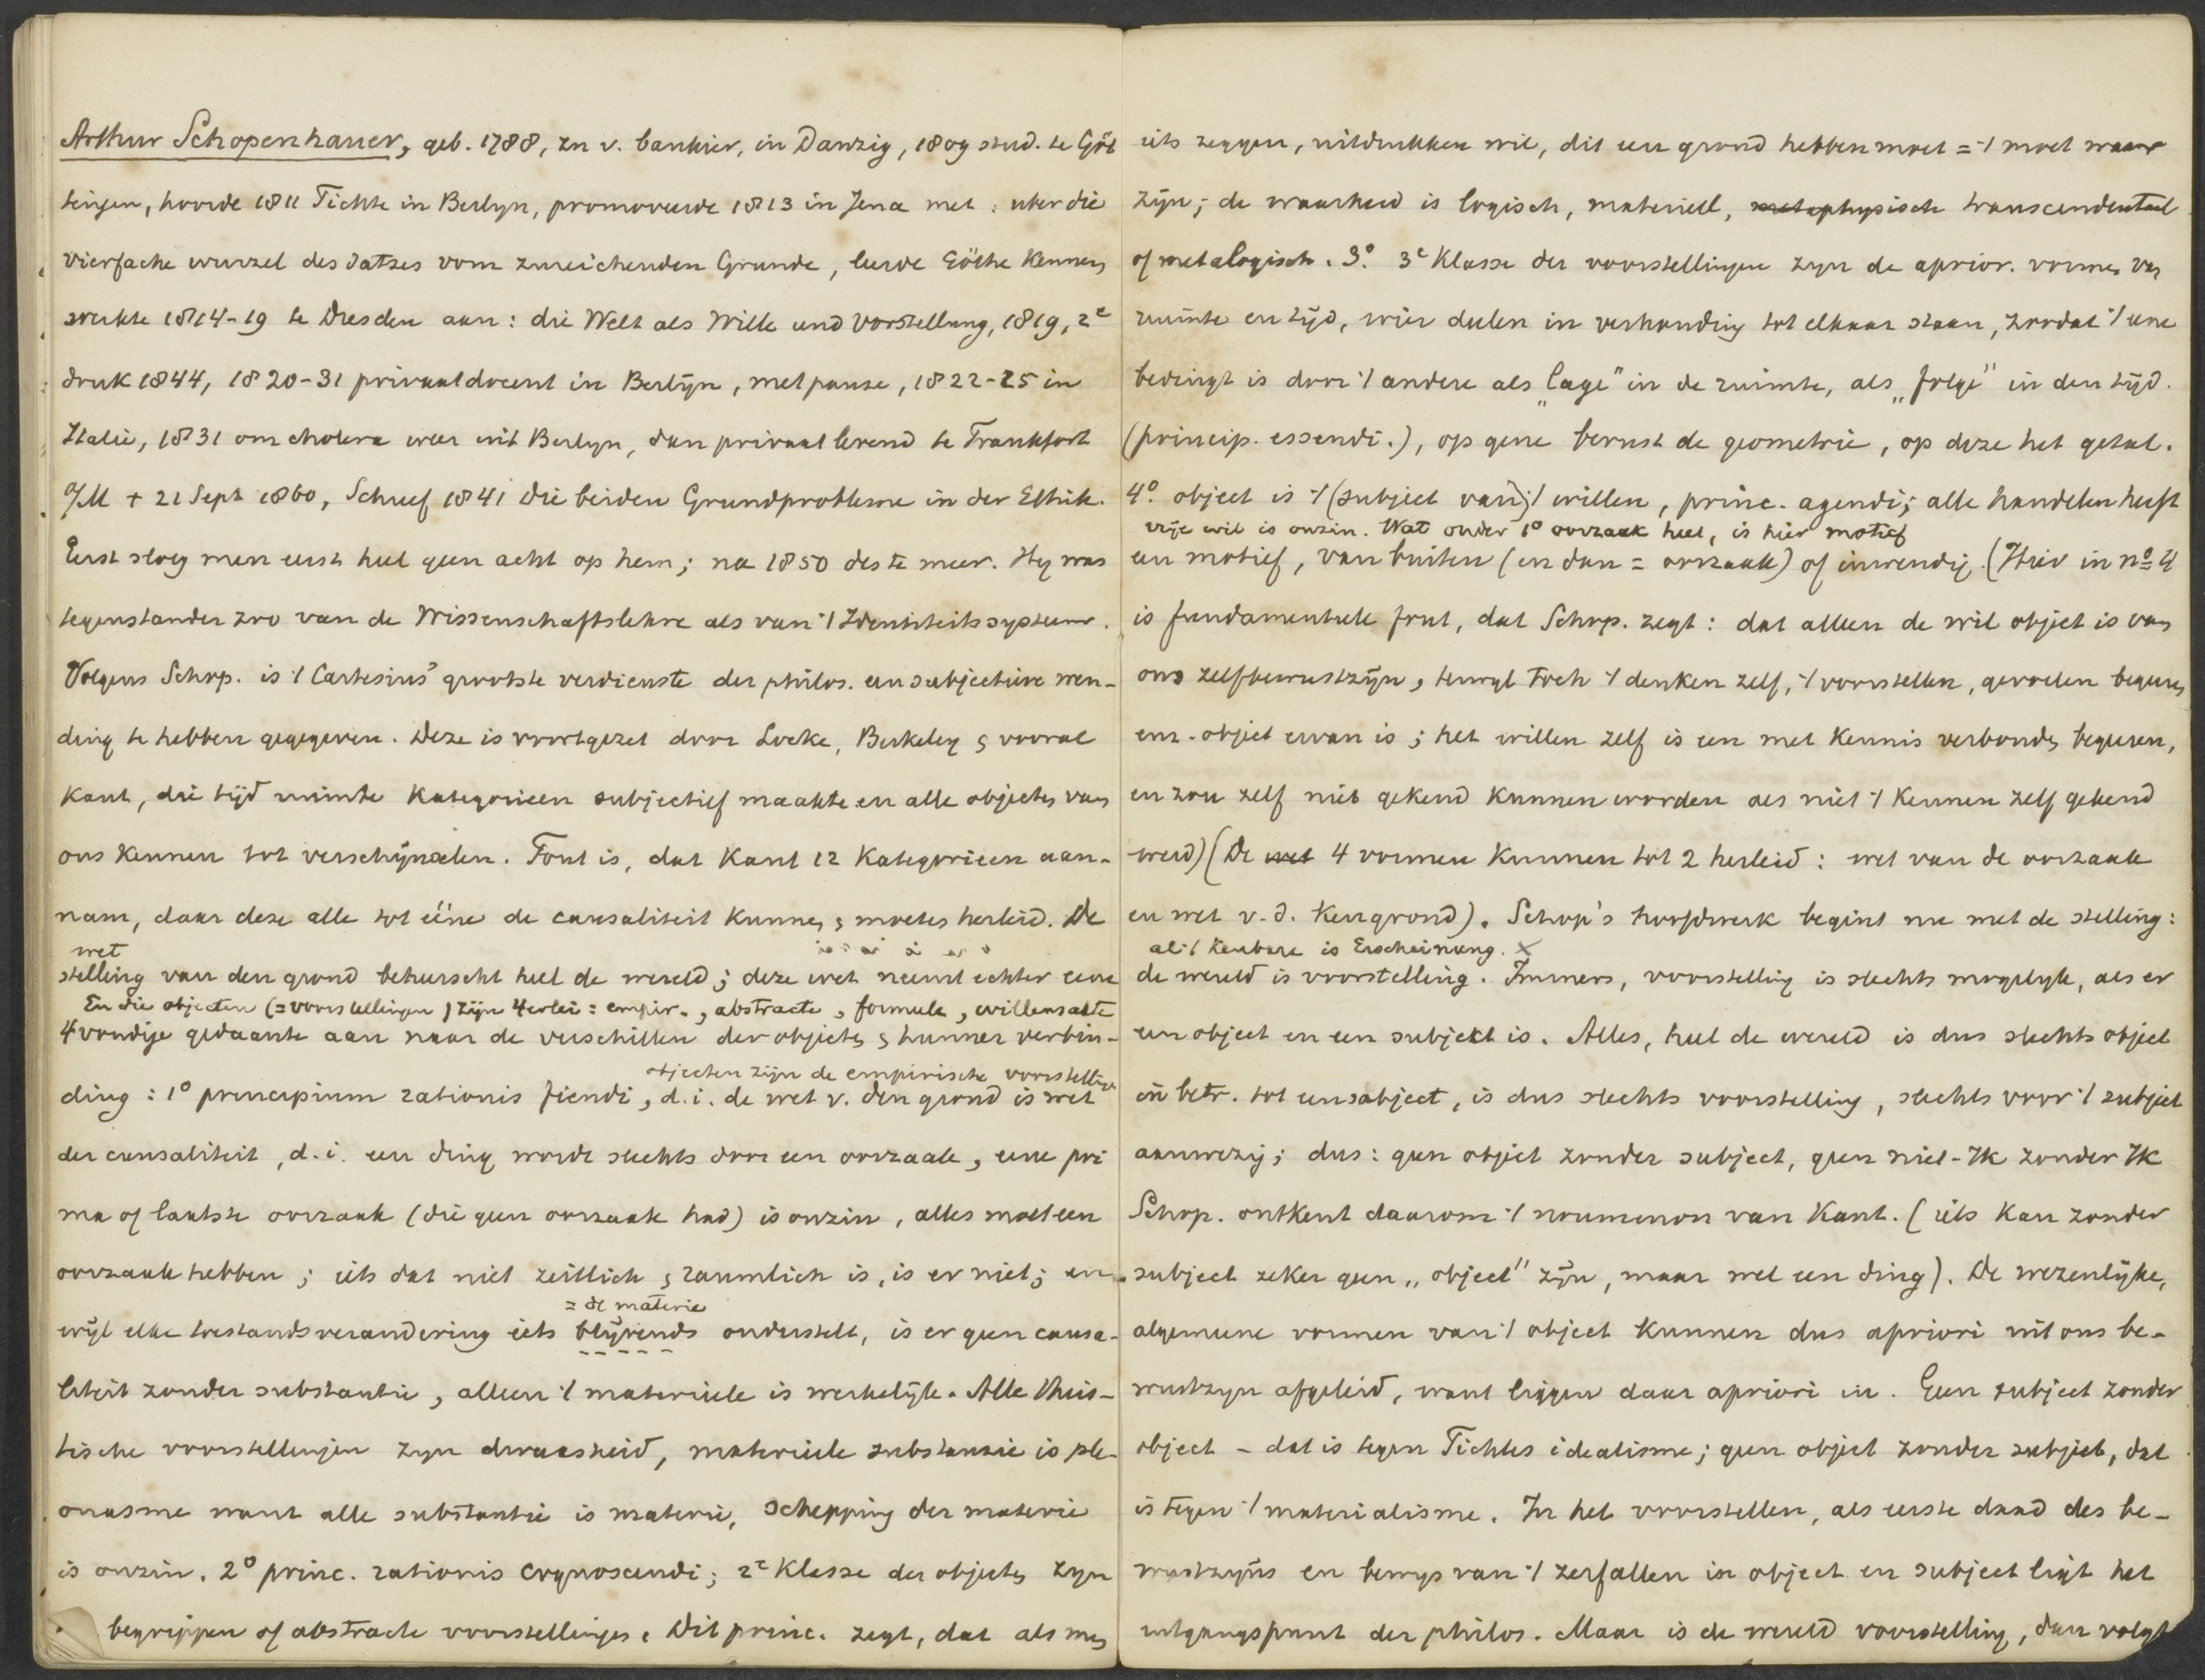 Arthur Schopenhauer, geb. 1788, zn v. bankier, in Danzig, 1809 stud. te Göt
tingen, hoorde 1811 Fichte in Berlyn, promoveerde 1813 in Jena met: uber die
vierfache wurzel des Satzes vom zureichenden Grunde, leerde Göthe kennen,
werkte 1814-19 te Dresden aan: die Welt als Wille und Vorstellung, 1819, 2e
druk 1844, 1820-31 privaatdocent in Berlijn, met pauze, 1822-25 in
Italie, 1831 om cholera weer uit Berlyn, dan privaat levend te Frankfort
a/M + 21 Sept 1860, Schreef 1841 Die beiden Grundprobleme in der Ethik.
Eerst sloeg men eerst heel geen acht op hem; na 1850 des te meer. Hy was
tegenstander zoo van de Wissenschaftslehre als van 't Identiteitssysteem.
Volgens Schop. is 't Cartesius' grootste verdienste der philos. een subjectieve wen-
ding te hebben gegegeven. Deze is voortgezet door Locke, Berkeley & vooral
Kant, die tijd ruimte Kategorieen subjectief maakte en alle objecten van
ons kennen tot verschijnselen. Fout is, dat Kant 12 Kategorieen aan-
nam, daar deze alle tot ééne de causaliteit kunnen & moeten herleid. De
wet
stelling van den grond beheerscht heel de wereld; deze wet neemt echter eene
En die objecten (= voorstellingen) zijn 4erlei: empir., abstracte, formeele, willensakte
4voudige gedaante aan naar de verschillen der objecten & hunner verbin-
objecten zijn de empirische voorstelling
ding: 1o principium rationis fiendi, d.i. de wet v. den grond is wet
der causaliteit, d.i. een ding wordt slechts door een oorzaak, eene pri
ma of laatste oorzaak (die geen oorzaak had) is onzin, alles moet een
oorzaak hebben; iets dat niet zeitlich & raumlich is, is er niet; en
= de materie
wijl elke toestandsverandering iets blijvends onderstelt, is er geen causa-
liteit zonder substantie, alleen 't materieele is werkelijk. Alle theis-
tische voorstellingen zyn dwaasheid, materieele substanzie is ple-
onasme want alle substantie is materie, schepping der materie
is onzin. 2o princ. rationis cognoscendi; 2e Klasse der objecten zyn
begrippen of abstracte voorstellingen. Dit princ. zegt, dat als men
iets zeggen, uitdrukken wil, dit een grond hebben moet = 't moet waar
zijn; de waarheid is logisch, materieel, metaphysisch transcendentaal
of metalogisch. 3o. 3e Klasse der voorstellingen zyn de aprior. vormen van
ruimte en tijd, wier delen in verhouding tot elkaar staan, zoodat 't eene
bedingt is door 't andere als „lage" in de ruimte, als „folge" in den tijd.
(princip. essendi.), op gene berust de geometrie, op deze het getal.
4o. object is 't (subject van) 't willen, princ. agendi; alle handelen heeft
vrije wil is onzin. Wat onder 1o oorzaak heet, is hier motief
een motief, van buiten (en dan = oorzaak) of inwendig. (Hier in no 4
is fundamenteele fout, dat Schop. zegt: dat alleen de wil object is van
ons zelfbewustzijn, terwyl toch 't denken zelf, 't voorstellen, gevoelen begeeren
enz. object ervan is; het willen zelf is een met kennis verbonden begeeren,
en zou zelf niet gekend kunnen worden als niet 't kennen zelf gekend
werd) (De wet 4 vormen kunnen tot 2 herleid: wet van de oorzaak
en wet v. d. kengrond). Schop's hoofdwerk begint nu met de stelling:
al 't kenbare is Erscheinung. X
de wereld is voorstelling. Immers, voorstelling is slechts mogelyk, als er
een object en een subjekt is. Alles, heel de wereld is dus slechts object
in betr. tot een subject, is dus slechts voorstelling, slechts voor 't subject
aanwezig; dus: geen object zonder subject, geen niet-Ik zonder Ik
Schop. ontkent daarom 't noumenon van Kant. (iets kan zonder
subject zeker geen „object" zijn, maar wel een ding). De wezenlijke,
algemeene vormen van 't object kunnen dus apriori uit ons be-
wustzyn afgeleid, want liggen daar apriori in. Geen subject zonder
object - dat is tegen Fichtes idealisme; geen object zonder subject, dat
is tegen 't materialisme. In het voorstellen, als eerste daad des be-
wustzijns en bewys van 't zerfallen in object en subject ligt het
uitgangspunt der philos. Maar is de wereld voorstelling, dan volgt